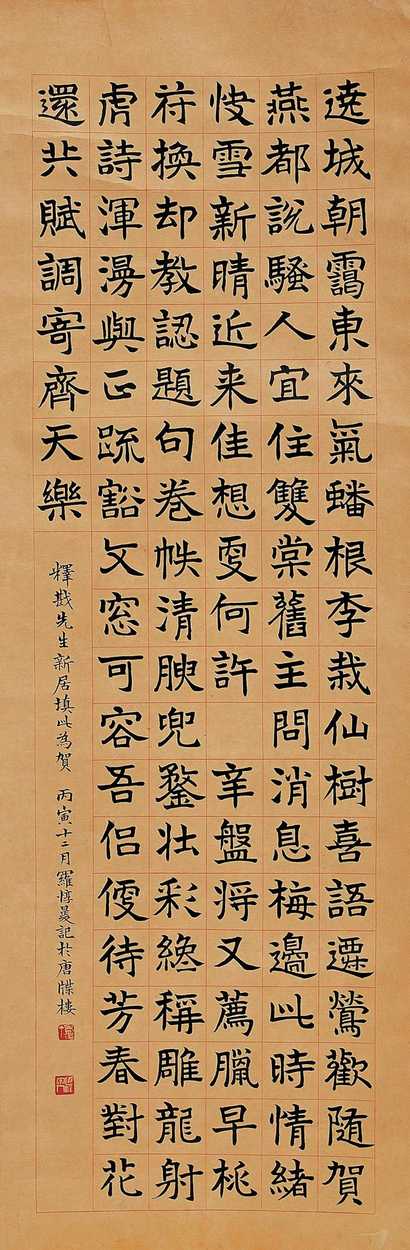 遶城朝靄東來氣蟠根李栽仙樹喜語遷鶯歡隨賀
燕都說騷人宜住雙棠舊主問消息梅邊此時情緒
快雪新晴近来佳想更何許 辛盤將又薦臘早桃
符換却教認題句卷帙清腴兜鍪壯彩纔稱雕龍射
虎詩渾漫與正疏豁文窓可容吾侶便待芳春對花
還共賦調寄齊天樂
釋戡先生新居填此為賀 丙寅十二月羅惇㬊記於唐牒樓